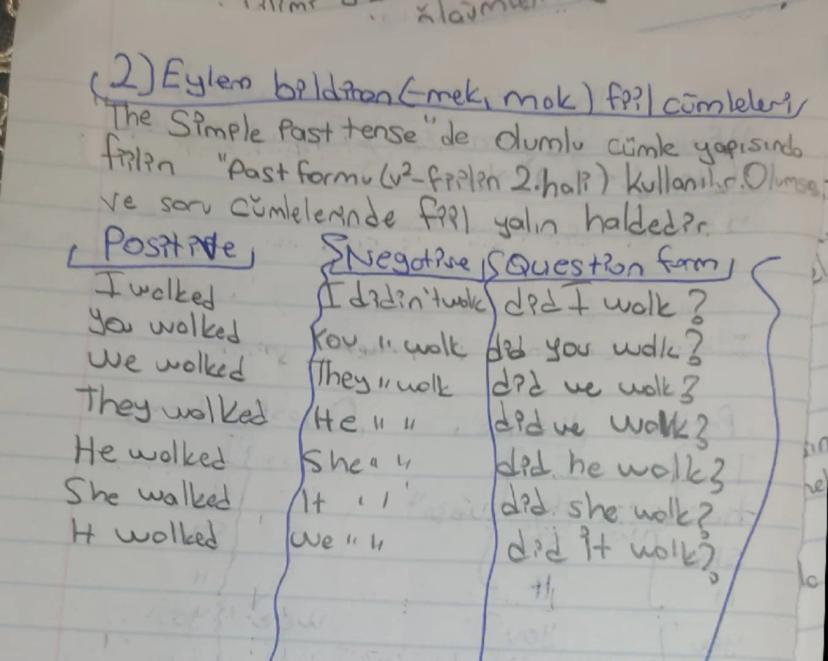 (2) Eylem bildiren (-mek, mak) fiil cümleleri
The Simple Past tense "de olumlu cümle yapısında
fiilin "Past formu (v²-fiilin 2.hali) kullanılır. Olumsuz
ve soru cümlelerinde fiil yalın haldedir.
Positive Negative Question form
I walked I didin't walk did I walk?
you walked You " walk did you walk?
We walked They " walk did we walk?
They walked He " " did we walk?
He walked She " " did he walk?
She walked It " " did she walk?
It walked We " " did it walk?